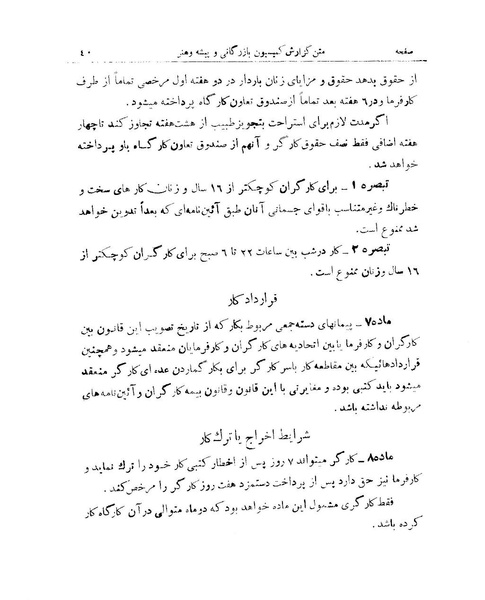 صفحه متن گزارش کمیسیون بازرگانی و پیشه وهنر ۴۰
از حقوق بدهد حقوق و مزایای زنان باردار در دو هفته اول مرخصی تماماً از طرف
کارفرما ودر۶ هفته بعد تماماً ازصندوق تعاون کارگاه پرداخته میشود.
اگرمدت لازم برای استراحت بتجویزطبیب از هشت هفته تجاوز کند تاچهار
هفته اضافی فقط نصف حقوق کارگر و آنهم از صندوق تعاون کارگاه باو پرداخته
خواهد شد.
تبصره ۱ ـ برای کارگران کوچکتر از ۱۶ سال و زنان کار های سخت و
خطرناك وغیرمتناسب باقوای جسمانی آنان طبق آئین نامه ای که بعداً تدوین خواهد
شد ممنوع است.
تبصره ۲ ـ کار درشب بین ساعات ۲۲ تا ۶ صبح برای کارگران کوچکتر از
۱۶ سال وزنان ممنوع است.
قرارداد کار
ماده۷ ـ پیمانهای دسته جمعی مربوط بکار که از تاریخ تصویب این قانون بین
کارگران وکارفرما یابین اتحادیه های کارگران و کارفرمایان منعقد میشود وهمچنین
قراردادهائیکه بین مقاطعه کار یاسرکارگر برای بکارگماردن عده ای کارگر منعقد
میشود باید کتبی بوده و مغایرتی با این قانون وقانون بیمه کارگران و آئین نامه های
مربوطه نداشته باشد.
شرایط اخراج یا ترك کار
ماده۸ ـ کارگر میتواند ۷ روز پس از اخطار کتبی کار خود را ترك نماید و
کارفرما نیز حق دارد پس از پرداخت دستمزد هفت روز کارگر را مرخص کند.
فقط کارگری مشمول این ماده خواهد بود که دوماه متوالی درآن کارگاه کار
کرده باشد.